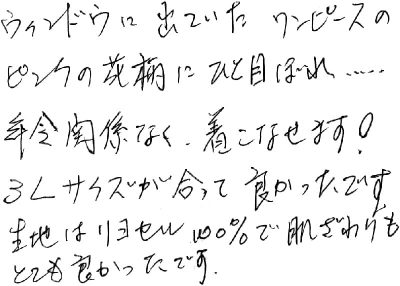 ウィンドウに出ていたワンピースの
ピンクの花柄にひと目ぼれ.....
年令関係なく、着こなせます!
3Lサイズが合って良かったです
生地はリヨセル100%で肌ざわりも
とても良かったです.